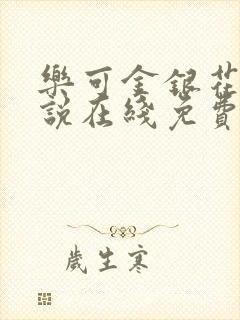 樂可金銀花
說在綫免費
歲生寒